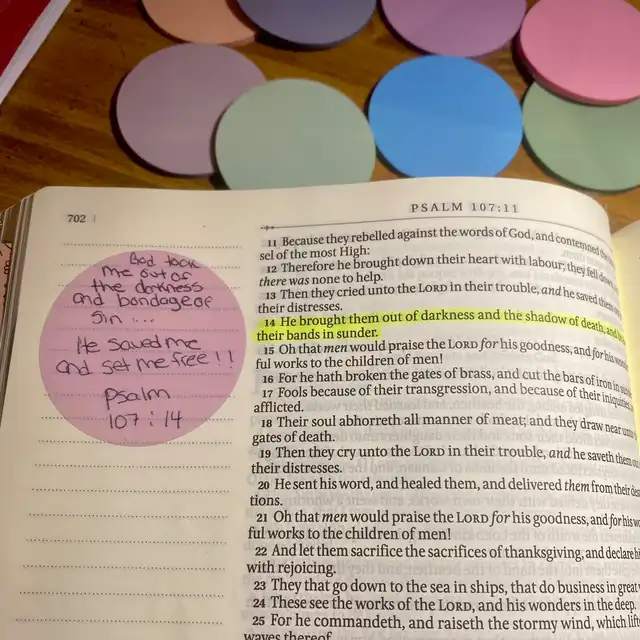 702
PSALM 107:11
God took
me out of
the darkness
and bondage of
sin ...
He saved me
and set me free!!
Psalm
107:14
11 Because they rebelled against the words of God, and contemned the
sel of the most High:
12 Therefore he brought down their heart with labour; they fell down,
there was none to help.
13 Then they cried unto the LORD in their trouble, and he saved them
their distresses.
14 He brought them out of darkness and the shadow of death, and
their bands in sunder.
15 Oh that men would praise the LORD for his goodness, and for his
ful works to the children of men!
16 For he hath broken the gates of brass, and cut the bars of iron in
17 Fools because of their transgression, and because of their iniquities,
afflicted.
18 Their soul abhorreth all manner of meat; and they draw near unto
gates of death.
19 Then they cry unto the LORD in their trouble, and he saveth them
their distresses.
20 He sent his word, and healed them, and delivered them from their
tions.
21 Oh that men would praise the LORD for his goodness, and for his
ful works to the children of men!
22 And let them sacrifice the sacrifices of thanksgiving, and declare
with rejoicing.
23 They that go down to the sea in ships, that do business in great
24 These see the works of the LORD, and his wonders in the deep.
25 For he commandeth, and raiseth the stormy wind, which
waves thereof.